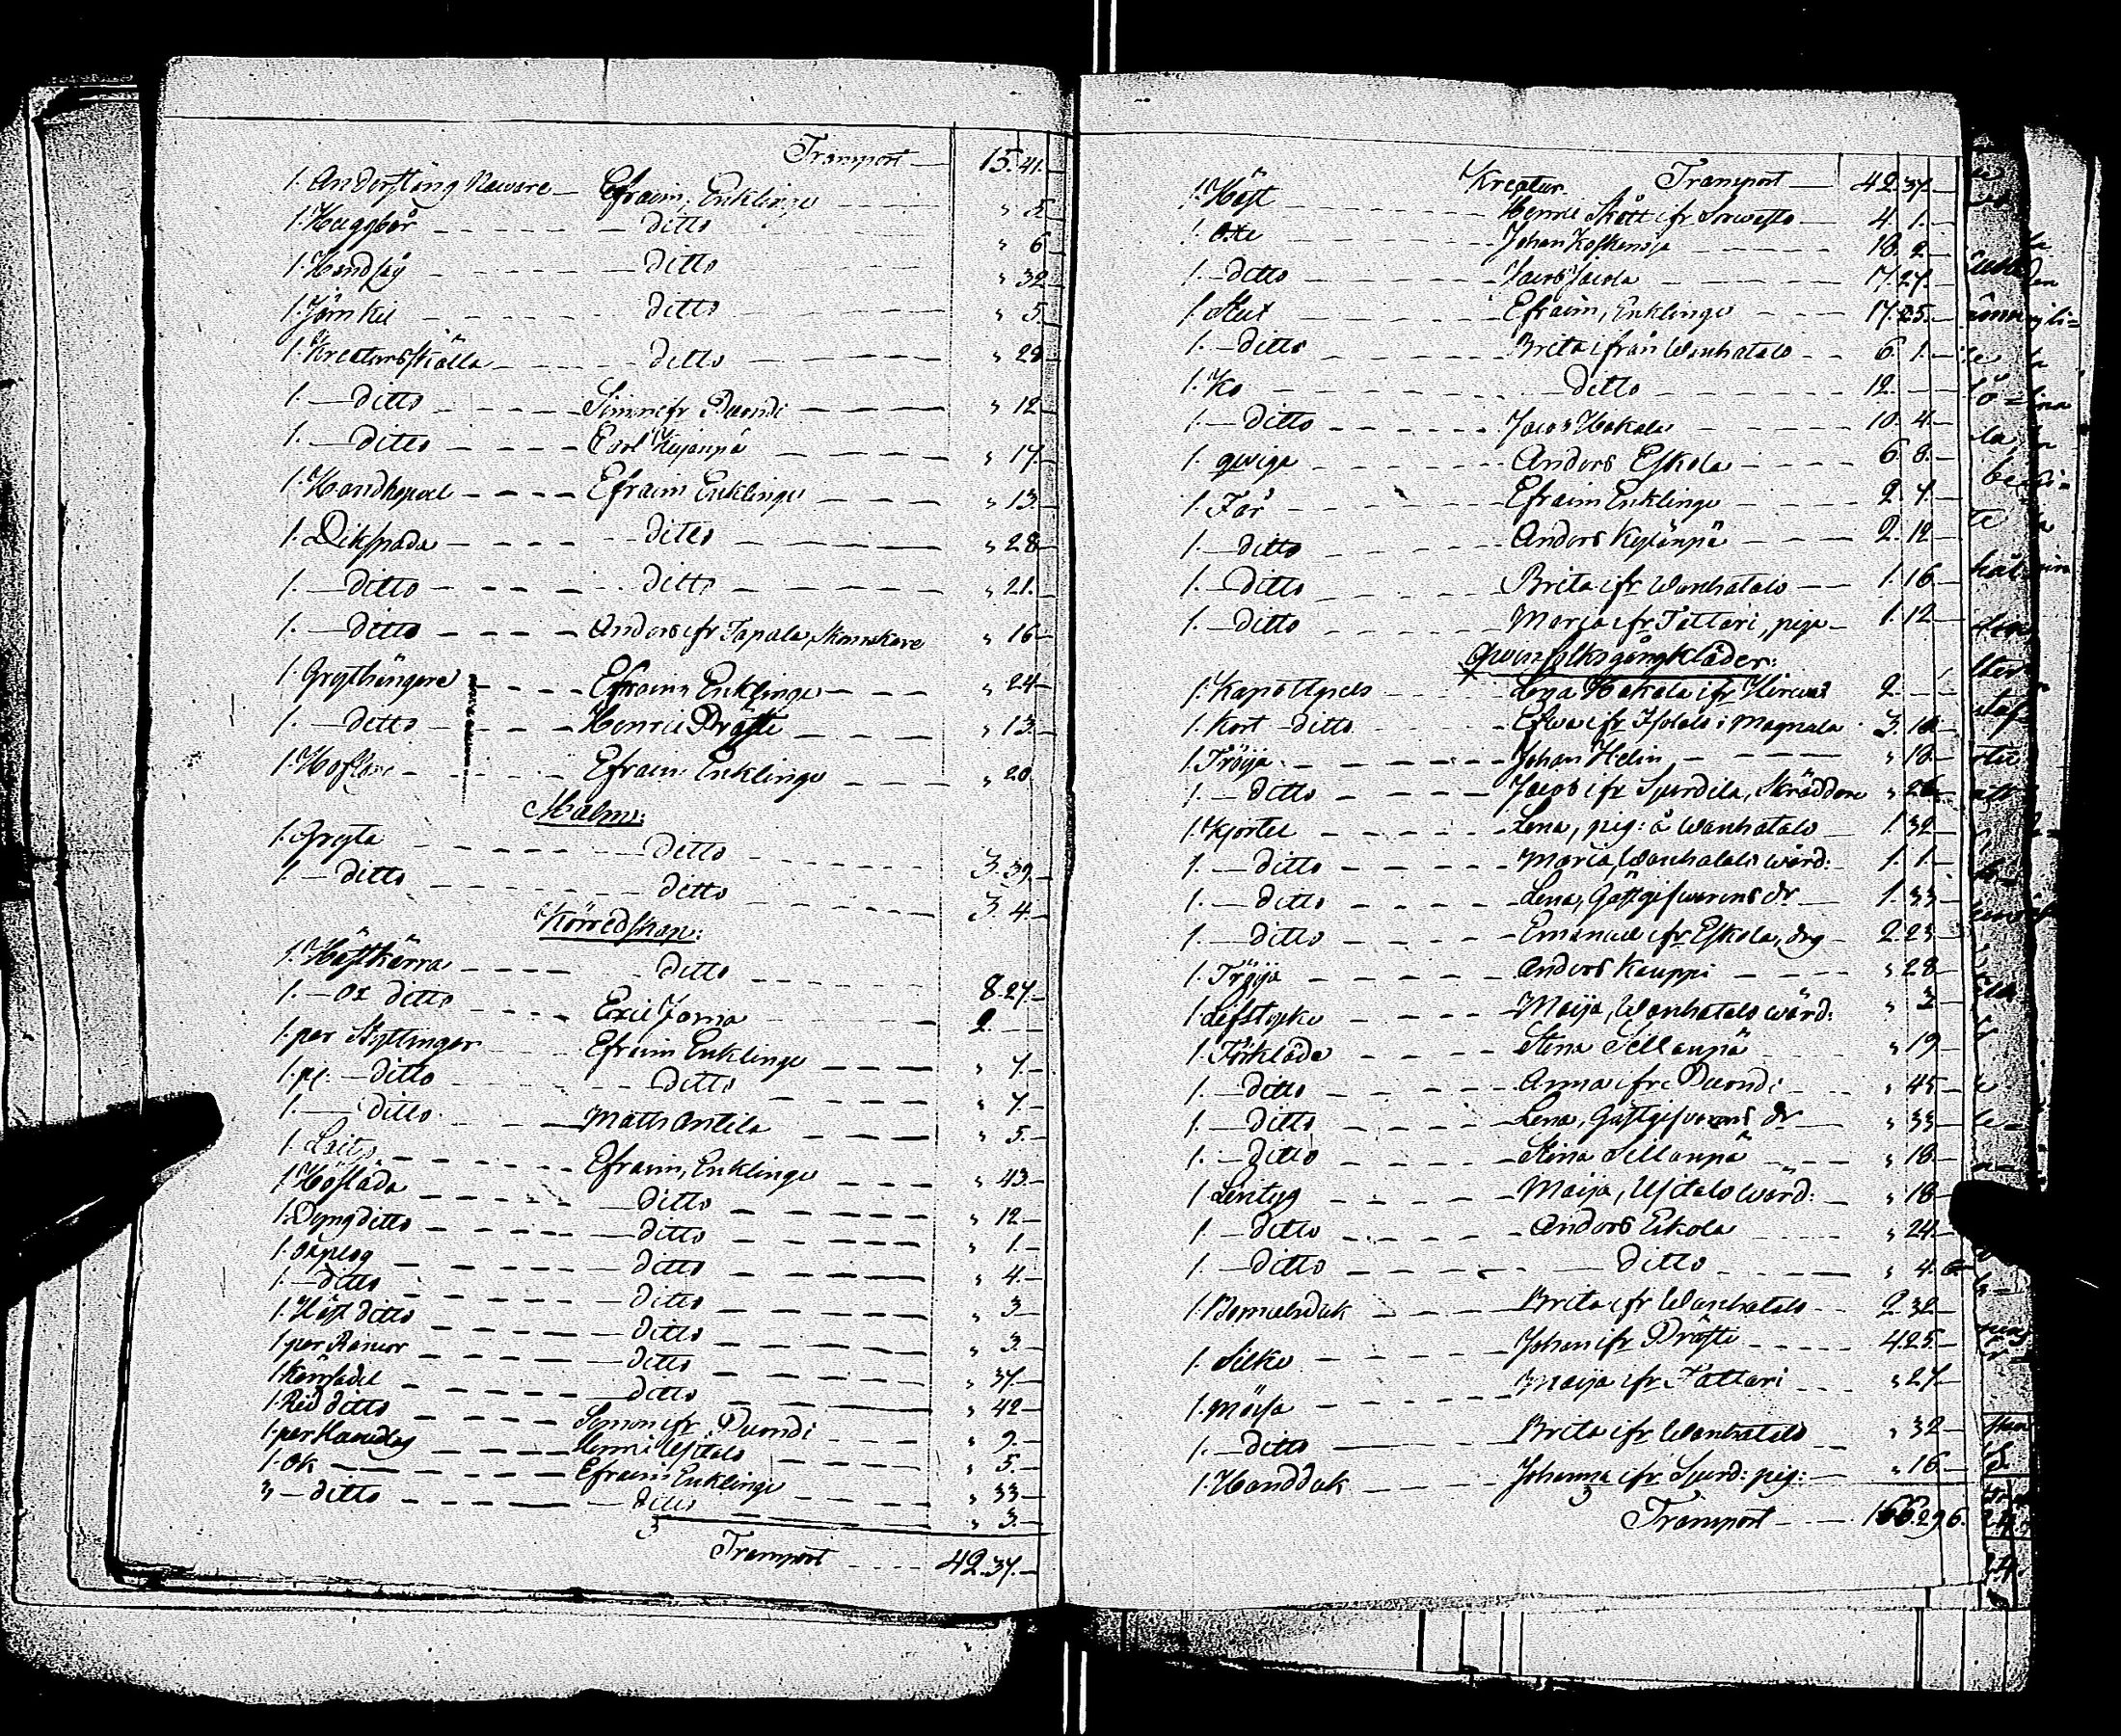 Transport — 15. 41. —
1. Anderstång Naware — Efraim, Enklinge — " 5. —
1. Huggbår — ditto — " 6 —
1. Handsåg — ditto — " 32 —
1. Järn Kil — ditto — " 5. —
1. Kreatursskiälla — ditto — " 28 —
1. — ditto — Simon ifr Duondi — " 12 —
1. — ditto — Carl Keijanpä — " 17 —
1. Handkopvel — Efraim Enklinge — " 13. —
1. Dikspada — ditto — " 28 —
1. — ditto — ditto — " 21. —
1. — ditto — Anders ifr Tapala, Skomakare — " 16 —
1. Grythängare — Efraim Enklinge — " 24 —
1. — ditto — Henric Präfti — " 13. —
1. — Efraim Enklinge — " 20
Malm:
1. Gryta — ditto — 3. 39. —
1. — ditto — ditto — 3. 4. —
Körredskap:
1. Hästkärra — ditto — 8. 27. —
1. — Ox ditto — Eric Jama — 2. —
1. par Skyttingar — Efraim Enklinge — " 7. —
1. p: — ditto — ditto — " 7. —
1. — ditto — Matts Antila — " 5. —
1. — Efraim, Enklinge — " 43. —
1. Höslåda — ditto — " 12 —
1. Dyng ditto — ditto — " 1. —
1. Oxplog — ditto — " 4. —
1. — ditto — ditto — " 3 —
1. Häst ditto — ditto — " 3. —
1. par Remor — ditto — " 37 —
1. Körsadel — ditto — " 42 —
1. Rid ditto — Simon ifr Duondi — " 9. —
1. par — Henric Ufitalo — " 5. —
1. Ok — Efraim Enklinge — " 33 —
" — ditto — ditto — " 3. —
Transport — 42. 37. —
Kreatur. Transport — 42. 37. —
1. Häst — Henric Skött ifr Sorwasto — 4. 1. —
1. Oxe — Johan Koskenoja — 18. 2 —
1. — ditto — Jacob Jacola — 17. 27. —
1. Stut — Efraim, Enklinge — 17. 25. —
1. — ditto — Brita ifrån Wanhatalo — 6. 1. —
1. Ko — ditto — 12. —
1. — ditto — Jacob Hakala — 10. 4. —
1. qwiga — Anders Eskola — 6. 8. —
1. Får — Efraim Enklinge — 2. 7. —
1. — ditto — Anders Keijänpä — 2. 12 —
1. — ditto — Brita ifr Wanhatalo — 1. 16 —
1. — ditto — Maria ifr Tattari, piga — 1. 12
Qwinfolks gångkläder:
1. Kapottpels — Lena Hakala ifr Hirwas — 2 —
1. Kort ditto — Efwa ifr Isotalo i Magnala — 3. 10 —
1. Tröija — Johan Helin — " 18 —
1. — ditto — Jacob ifr Spurdila, Skräddare — " 26 —
1. Kjortel — Lena, pig: å Wanhatalo — 1. 32 —
1. — ditto — Maria, Wanhatalo wärd: — 1. 1. —
1. — ditto — Lena, Gästgifwarens dr — 1. 33 —
1. — ditto — Emanuel ifr Eskola, drg — 2. 23 —
1. Tröija — Anders Kauppi — " 28 —
1. Lifstycke — Maija, Wanhatalo wärd: — " 3 —
1. Förkläde — Stina Sillanpä — " 19 —
1. — ditto — Anna ifr Duondi — " 45 —
1. — ditto — Lena, Gästgifwarens dr — " 33 —
1. — ditto — Stina Sillanpä — " 18 —
1. Lintyg — Maija, Ufitalo wärd: — " 18 —
1. — ditto — Anders Eskola — " 24 —
1. — ditto — ditto — " 4. 6
1. Bomulsduk — Brita ifr Wanhatalo — 2. 32 —
1. Silke — Johan ifr Präfti — 4. 25. —
1. Mössa — Maija ifr Tattari — " 27 —
1. — ditto — Brita ifr Wanhatalo — " 32 —
1. Handduk — Johanna ifr Spurd: pig: — " 16. —
Transport — 166. 29 6.